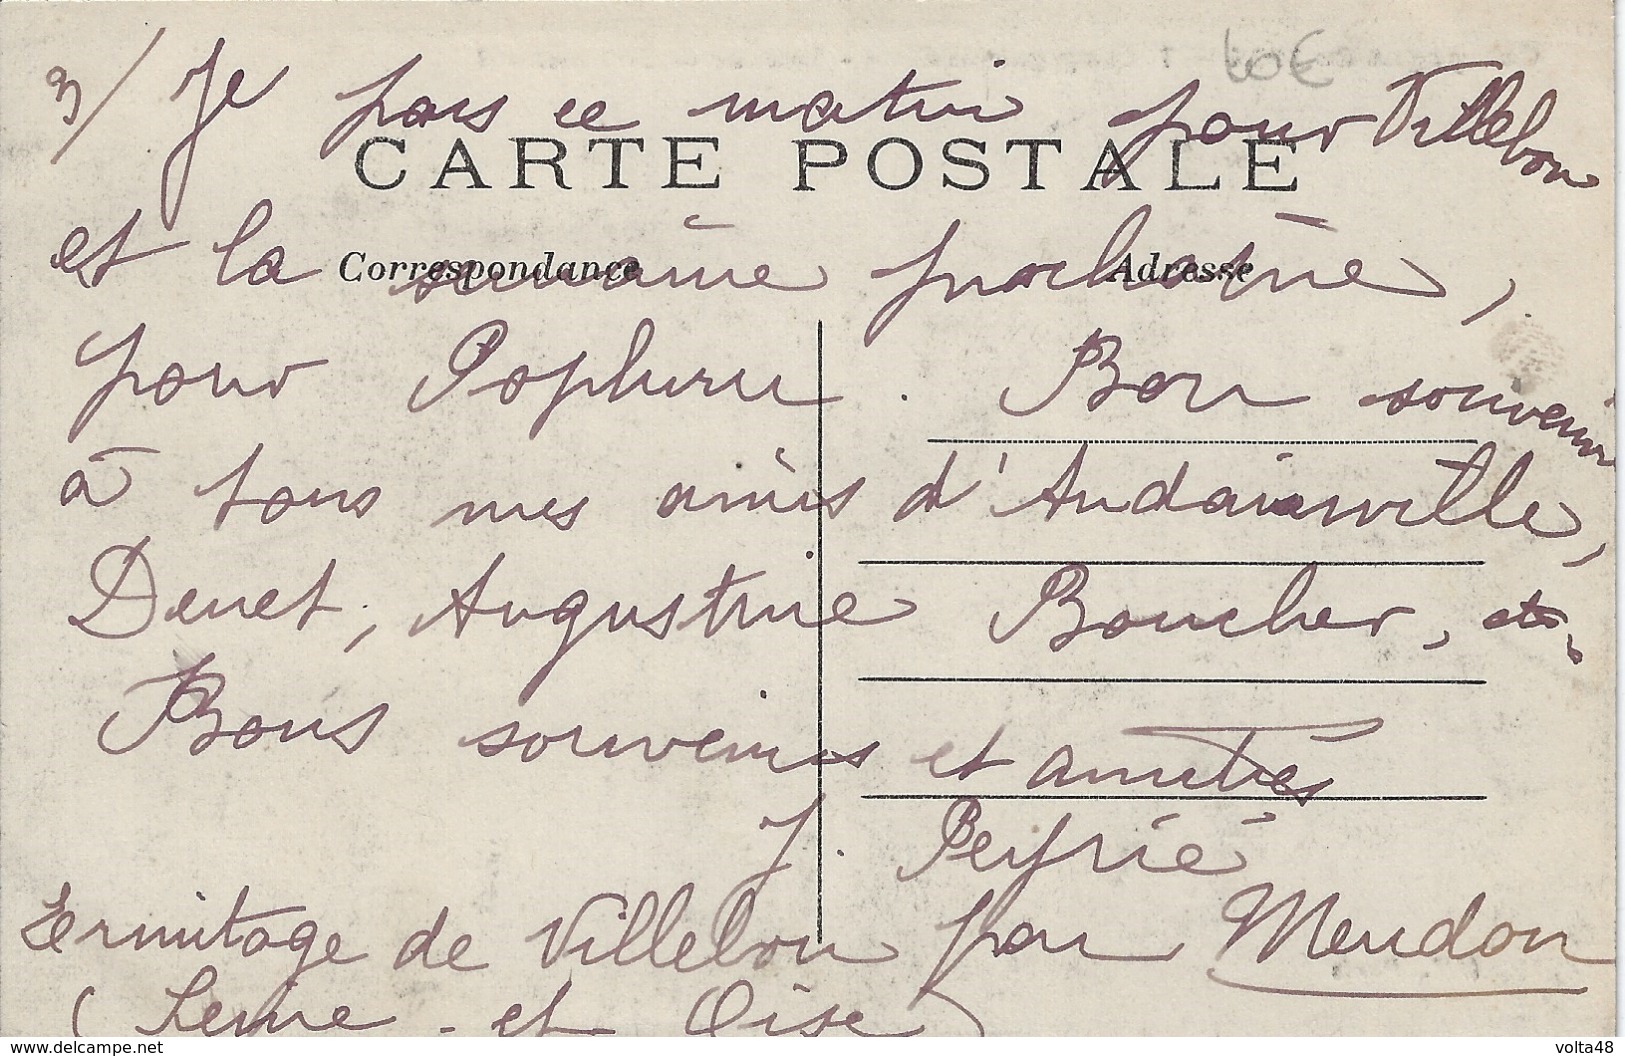 60€
3/ Je pars ce matin pour Villebon
CARTE POSTALE
et la semaine prochaine,
Correspondance Adresse
pour . Bon souvenir
à tous mes amis d'Andainville,
Denet, Augustine Boucher, etc
Bons souvenirs et amitiés
J. Peyrié
Ermitage de Villebon par Meudon
(Seine-et-Oise)
delcampe.net volta48